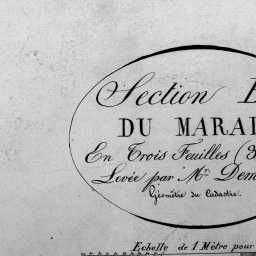 Section
DU MARAI
En Trois Feuilles (3
Levée par Mr. Dem
Géomètre du Cadastre.
Echelle de 1 Mètre pour